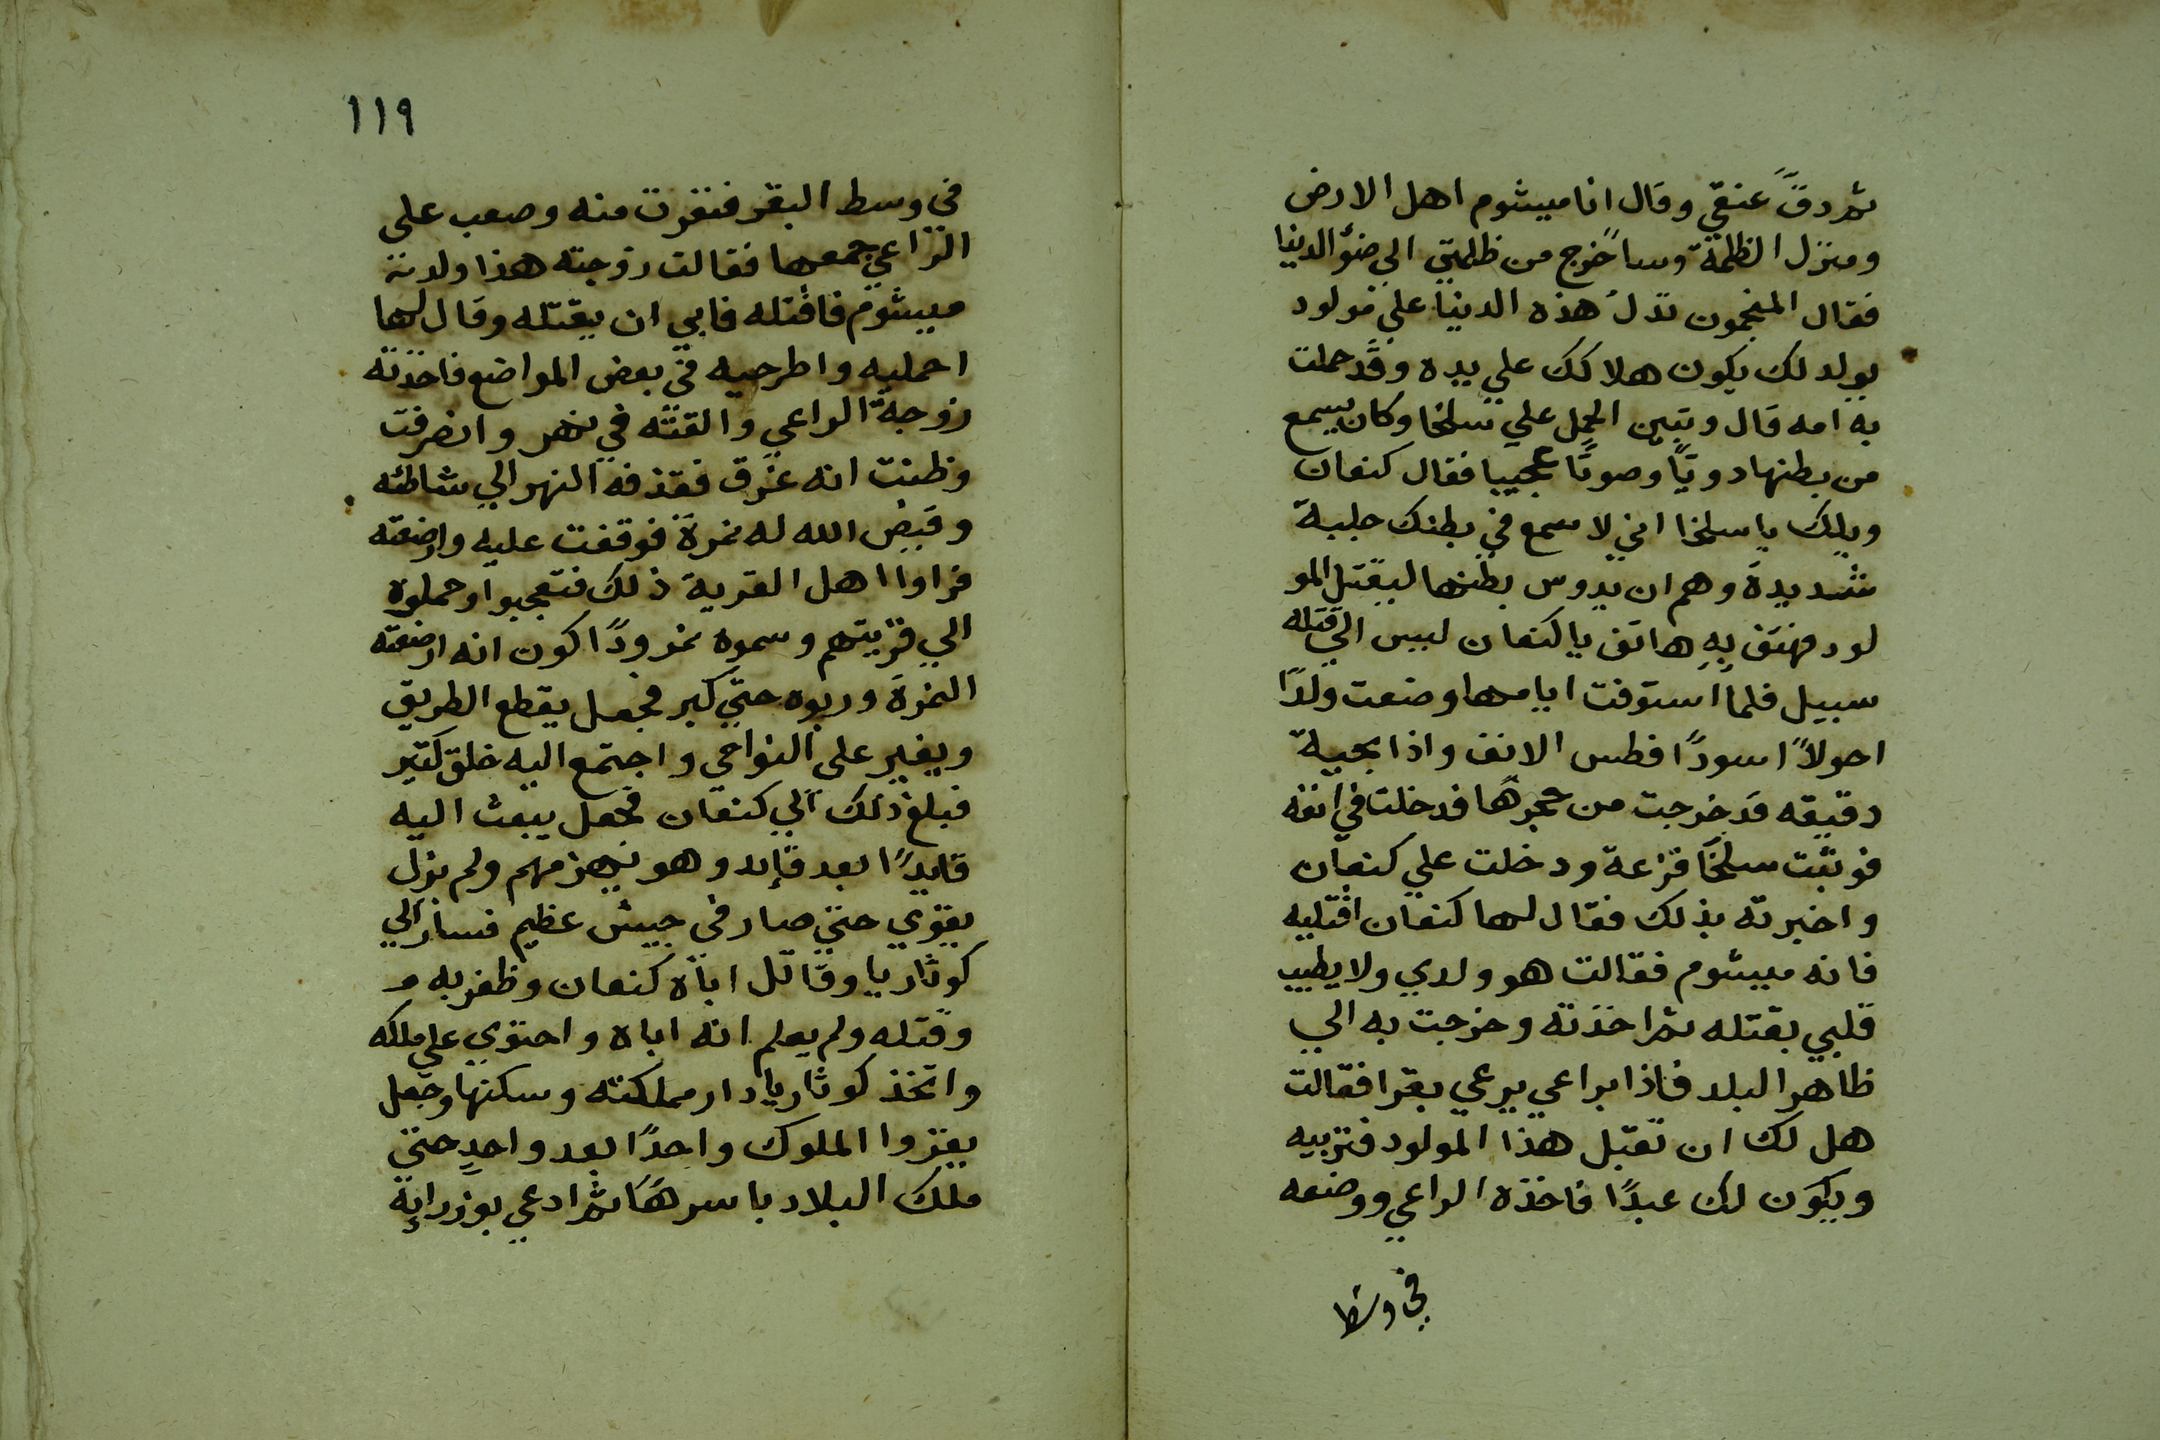 ثم دقَّ عنقي وقال انا ميشوم اهل الارض
ومنزل الظلمة وساخرج من ظلمتي الي ضوُ الدنيا
فقال المنجمون تدلُ هذه الدنيا علي مولود
يولد لك يكون هلاكك علي يده وقد حملت
به امه قال وتبين الحمل علي سلخا وكان يسمع
من بطنها دويًا وصوتًا عجيبا فقال كنعان
ويلك يا سلخا اني لاسمع في بطنك جلبة
شديدة وهم ان يدوس بطنها ليقتل المو
لود فهتف بهِ هاتف يا كنعان ليس الي قتله
سبيل فلما استوفت ايامها وضعت ولدًا
احولاً اسودًا فطس الانف واذا بحية
دقيقه قد خرجت من حجرها فدخلت في انفه
فوثبت سلخا فزعة ودخلت علي كنعان
واخبرته بذلك فقال لها كنعان اقتليه
فانه ميشوم فقالت هو ولدي ولا يطيب
قلبي بقتله ثم اخذته وخرجت به الي
ظاهر البلد فاذا براعي يرعي بقرا فقالت
هل لك ان تقبل هذا المولود فتربيه
ويكون لك عبدًا فاخذه الراعي ووضعه
في وسط
١١٩
في وسط البقر فنفرت منه وصعب على
الراعي جمعها فقالت زوجته هذا ولدنة
ميشوم فاقتله فابي ان يقتله وقال لها
احمليه واطرحيه في بعض المواضع فاخذته
زوجة الراعي والقته في نهر وانصرفت
وظنت انه غرق فقذفه النهر الي شاطئه
وقبض الله له نمرة فوقفت عليه وارضعته
فراوا اهل القرية ذلك فتعجبوا وحملوه
الي قريتهم وسموه نمرودًا كون انه ارضعته
النمرة وربوه حتي كبر فجعل يقطع الطريق
ويغير على النواحي واجتمع اليه خلق كتير
فبلغ ذلك الي كنعان فجعل يبعث اليه
قايدًا بعد قايد وهو يهزمهم ولم يزل
يقوي حتي صار في جيش عظيم فسار الي
كوثاريا وقاتل اباه كنعان وظفر به و
وقتله ولم يعلم انه اباه واحتوي علي ملكه
واتخذ كوثاريا دار مملكته وسكنها وجعل
يغزوا الملوك واحدًا بعد واحدٍ حتي
ملك البلاد باسرها ثم ادعي بوزرايه